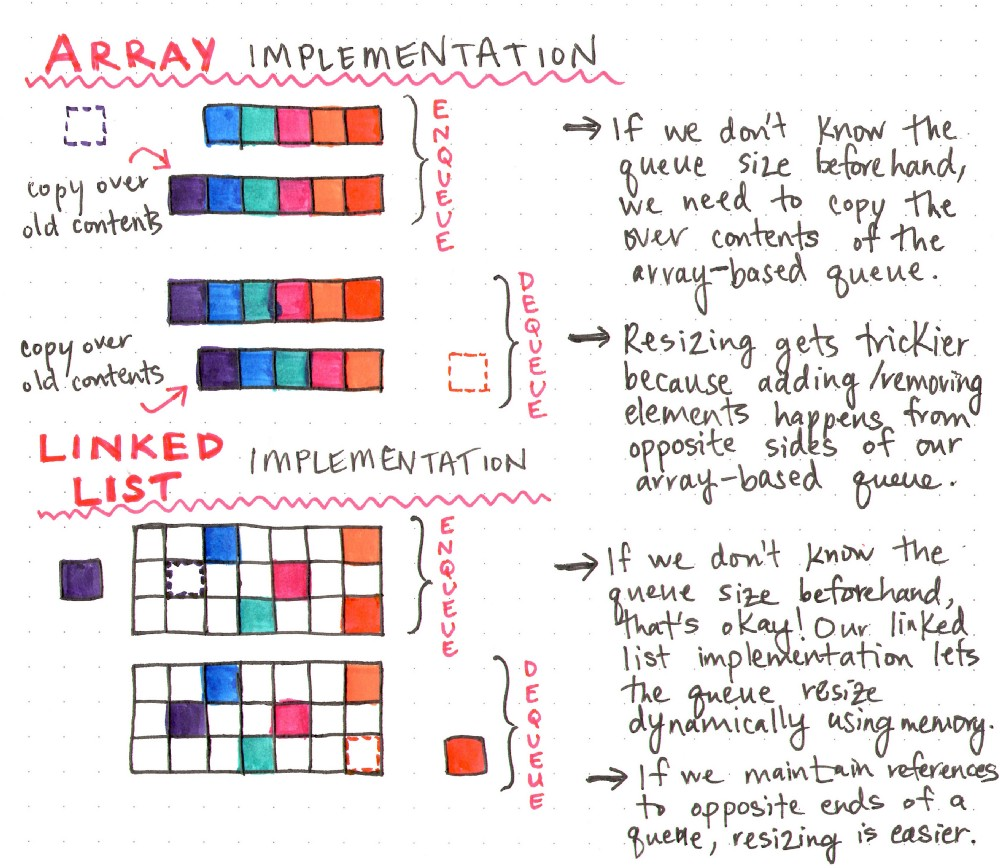 ARRAY IMPLEMENTATION
ENQUEUE
copy over
old contents
→ If we don't know the
queue size beforehand,
we need to copy the
over contents of the
array-based queue.
DEQUEUE
copy over
old contents
→ Resizing gets trickier
because adding/removing
elements happens from
opposite sides of our
array-based queue.
LINKED
LIST IMPLEMENTATION
ENQUEUE
→ If we don't know the
queue size beforehand,
that's okay! Our linked
list implementation lets
the queue resize
dynamically using memory.
DEQUEUE
→ If we maintain references
to opposite ends of a
queue, resizing is easier.